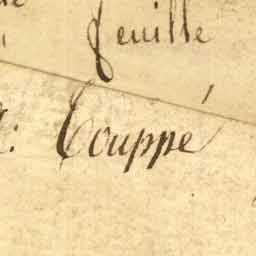 feuille
: Couppé